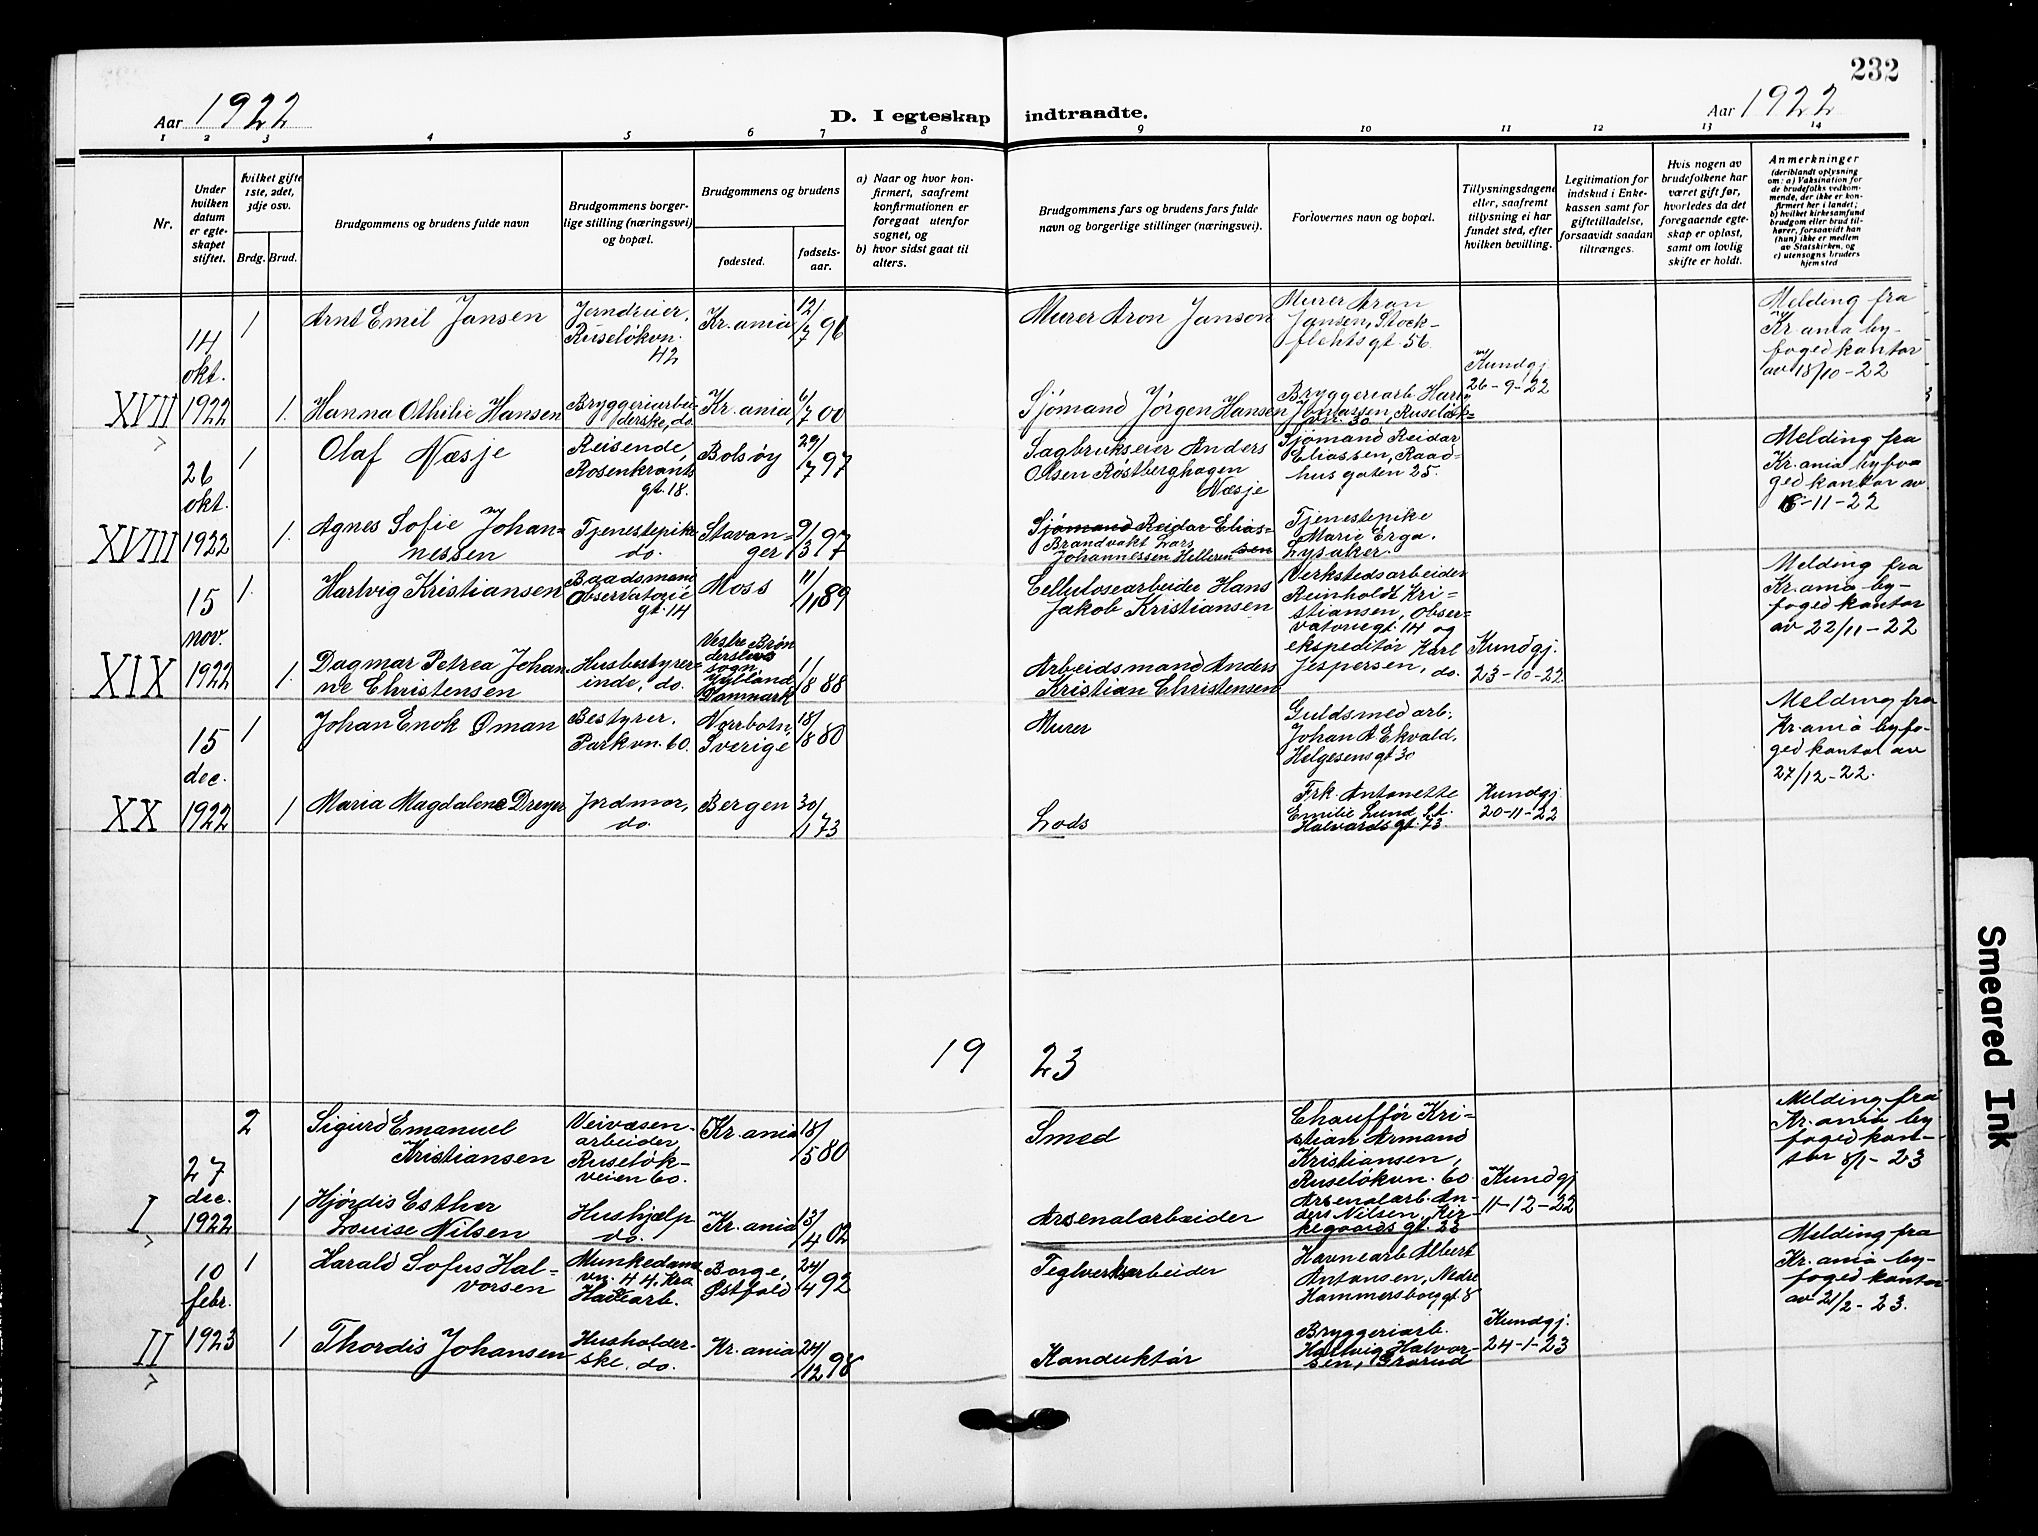 232
Aar 1922
D. I egteskap indtraadte.
Aar 1922
1 2 3 4 5 6 7 8 9 10 11 12 13 14
Nr.
Under hvilken datum er egteskapet stiftet.
hvilket gifte 1ste, 2det, 3dje osv.
Brdg. Brud.
Brudgommens og brudens fulde navn
Brudgommens borgerlige stilling (næringsvei) og bopæl.
Brudgommens og brudens
fødested.
fødselsaar.
a) Naar og hvor konfirmert, saafremt konfirmationen er foregaat utenfor sognet, og
b) hvor sidst gaat til alters.
Brudgommens fars og brudens fars fulde navn og borgerlige stillinger (næringsvei).
Forlovernes navn og bopæl.
Tillysningsdagene eller, saafremt tillysning ei har fundet sted, efter hvilken bevilling.
Legitimation for indskud i Enkekassen samt for giftetilladelse, forsaavidt saadan tiltrænges.
Hvis nogen av brudefolkene har været gift før, hvorledes da det foregaaende egteskap er opløst, samt om lovlig skifte er holdt.
Anmerkninger
(deriblandt oplysning om: a) Vaksination for de brudefolks vedkommende, der ikke er konfirmert her i landet; b) hvilket kirkesamfund brudgom eller brud tilhører, forsaavidt han (hun) ikke er medlem av Statskirken, og c) utensogns bruders hjemsted
XVII
14 okt. 1922
1
Arnt Emil Jansen
Jerndreier, Ruseløkvn. 42
Kr.ania
12/7 96
Murer Aron Janson
Murer Aron Jansen, Stockflehtsgt. 56
Kundgj. 26-9-22
Melding fra Kr.ania byfogedkontor av 18/10-22
1.
Hanna Othilie Hansen
Bryggeriarbeiderske, do.
Kr.ania
6/7 00
Sjømand Jørgen Hansen
XVIII
26 okt. 1922
1
Olaf Næsje
Reisende, Rosenkrants gt. 18.
Bolsøy
29/7 97
Sagbrukseier Anders Olsen Røstberghagen Næsje
Sjømand Reidar Eliassen, Raadhusgaten 25.
Melding fra Kr.ania byfogedkontor av 6-11-22
1.
Agnes Sofie Johannessen
Tjenestepike do.
Stavanger
9/3 97
Sjømand Reidar Eliassen
Brandvakt Lars Johannessen Helleren
Tjenestepike Marie Erga. Lysaker.
XIX
15 nov. 1922
1.
Hartvig Kristiansen
Baadsmand Observatorie gt. 14
Moss
11/11 89
Cellulosearbeider Hans Jakob Kristiansen
Verkstedsarbeider Reinholdt Kristiansen, Observatoriegt. 14 og ekspeditør Karl Jespersen, do.
Kundgj. 23-10-22
Melding fra Kr.ania byfogedkontor av 22/11-22
1.
Dagmar Petrea Johanne Christensen
Husbestyrerinde, do.
Vestre Brønderslevs sogn, Danmark
1/8 88
Arbeidsmand Anders Kristian Christensen
XX
15 dec. 1922
1
Johan Enok Øman
Bestyrer, Parkvn. 60.
Norrbotn, Sverige
18/8 80
Murer
Guldsmedarb. Johan A. Ekvald, Helgesensgt 30
Kundgj 20-11-22
Melding fra Kr.ania byfogedkontor av 27/12-22.
1
Maria Magdalene Dreyer
Jordmor, do.
Bergen
30/1 73
Lods
Frk. Antonette Emilie Lund St. Halvardsgt. 73
19 23
I
27 dec. 1922
2
Sigurd Emanuel Kristiansen
Veivæsenarbeider, Ruseløkveien 60.
Kr.ania
18/5 80
Smed
Chauffør Kristian Armand Kristiansen, Ruseløkvn. 60
Kundgj 11-12-22
Melding fra Kr.ania byfogedkontor 8/1-23
1
Hjørdis Esther Louise Nilsen
Hushjælp do.
Kr.ania
13/4 02
Arsenalarbeider
Arsenalarb. Anders Nilsen, Kirkegaards gt. 22
II
10 febr. 1923
1
Harald Sofus Halvorsen
Munkedamsvn. 44, Kra Havnearb.
Borge, Østfold
24/4 92
Teglverksarbeider
Havnearb Albert Antonsen, Nedre Hammersborggt 8
Kundgj. 24-1-23
Melding fra Kr.ania byfogedkontor av 21/2-23.
1
Thordis Johansen
Husholderske, do.
Kr.ania
24/12 98
Konduktør
Bryggeriarb. Hartvig Halvorsen, Grorud
Smeared Ink